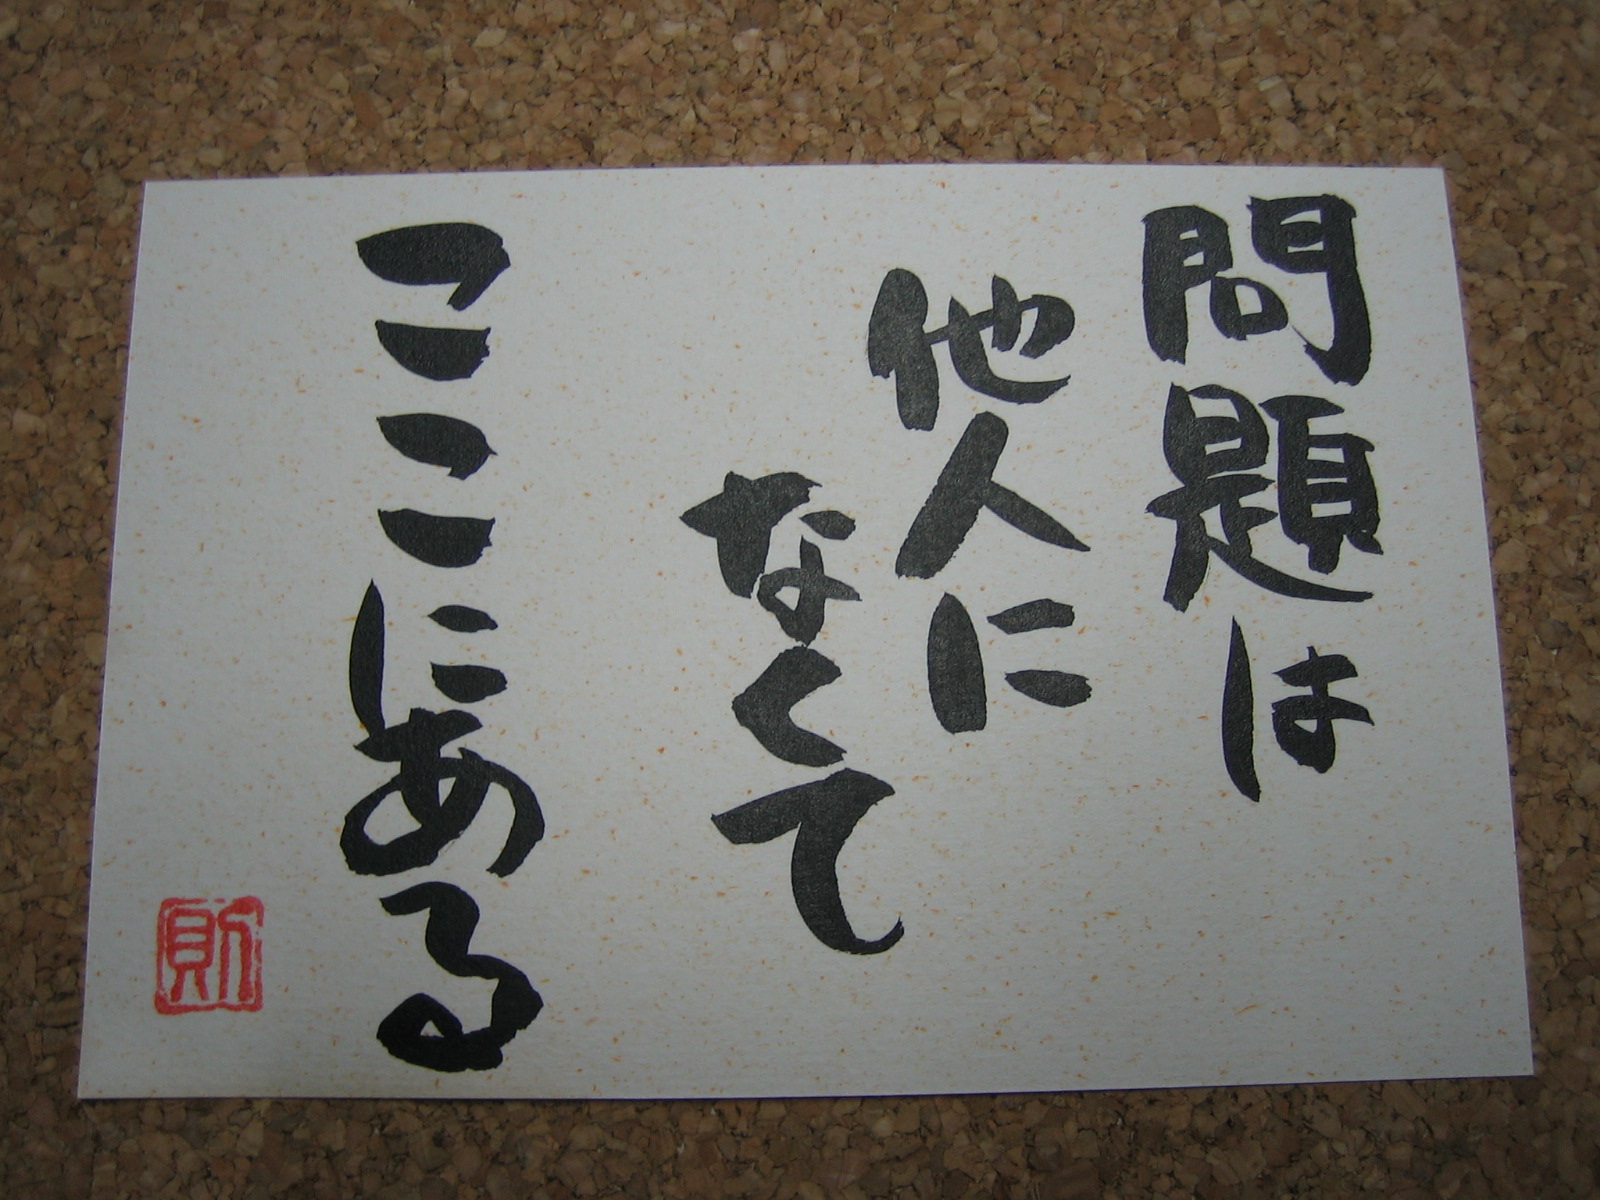 問題は
他人に
なくて
ここにある
則